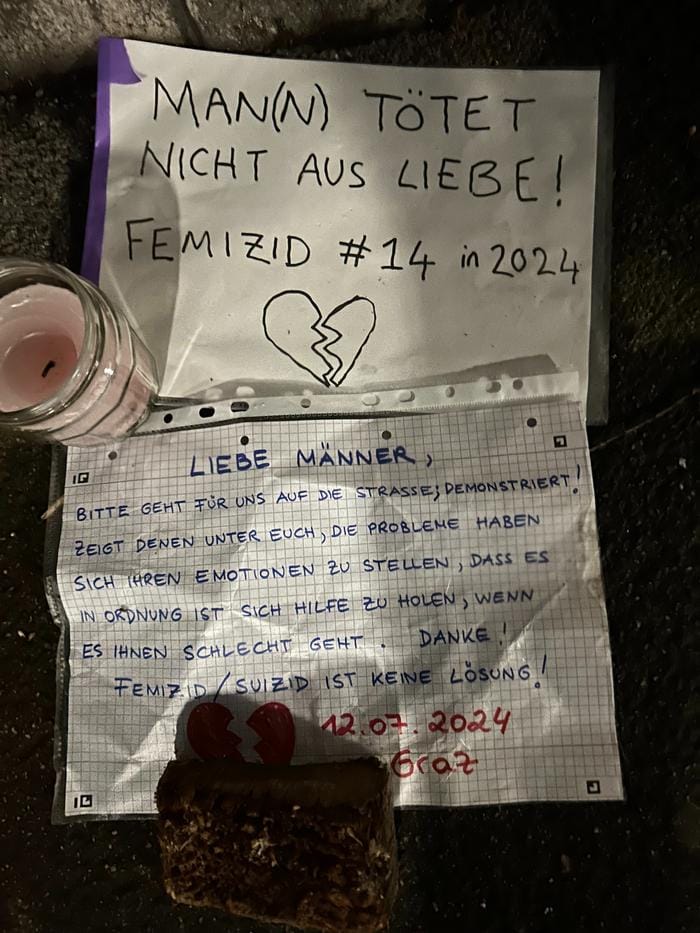 MAN(N) TÖTET
NICHT AUS LIEBE!
FEMIZID #14 in 2024
LIEBE MÄNNER,
BITTE GEHT FÜR UNS AUF DIE STRASSE; DEMONSTRIERT!
ZEIGT DENEN UNTER EUCH, DIE PROBLEME HABEN
SICH IHREN EMOTIONEN ZU STELLEN, DASS ES
IN ORDNUNG IST SICH HILFE ZU HOLEN, WENN
ES IHNEN SCHLECHT GEHT. DANKE!
FEMIZID/SUIZID IST KEINE LÖSUNG!
12.07.2024
Graz